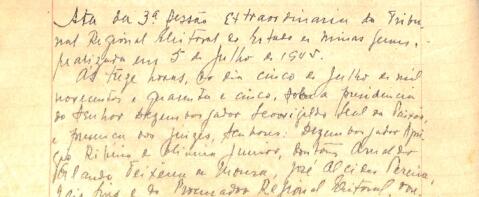 Ata da 3ª Sessão Extraordinaria do Tribu-
nal Regional Eleitoral do Estado de Minas Gerais,
realizada em 5 de Julho de 1945.
Ás treze horas, do dia cinco de Julho de mil
novecentos e quarenta e cinco, sob a presidencia
do Senhor Dezembargador Leal da Paixão,
e presença dos juizes, Senhores: Dezembargador
Ribeiro e Oliveira Junior, doutores Arnaldo
Orlando Teixeira de Moura, José Alcides Pereira,
e do Procurador Regional Eleitoral, dou-